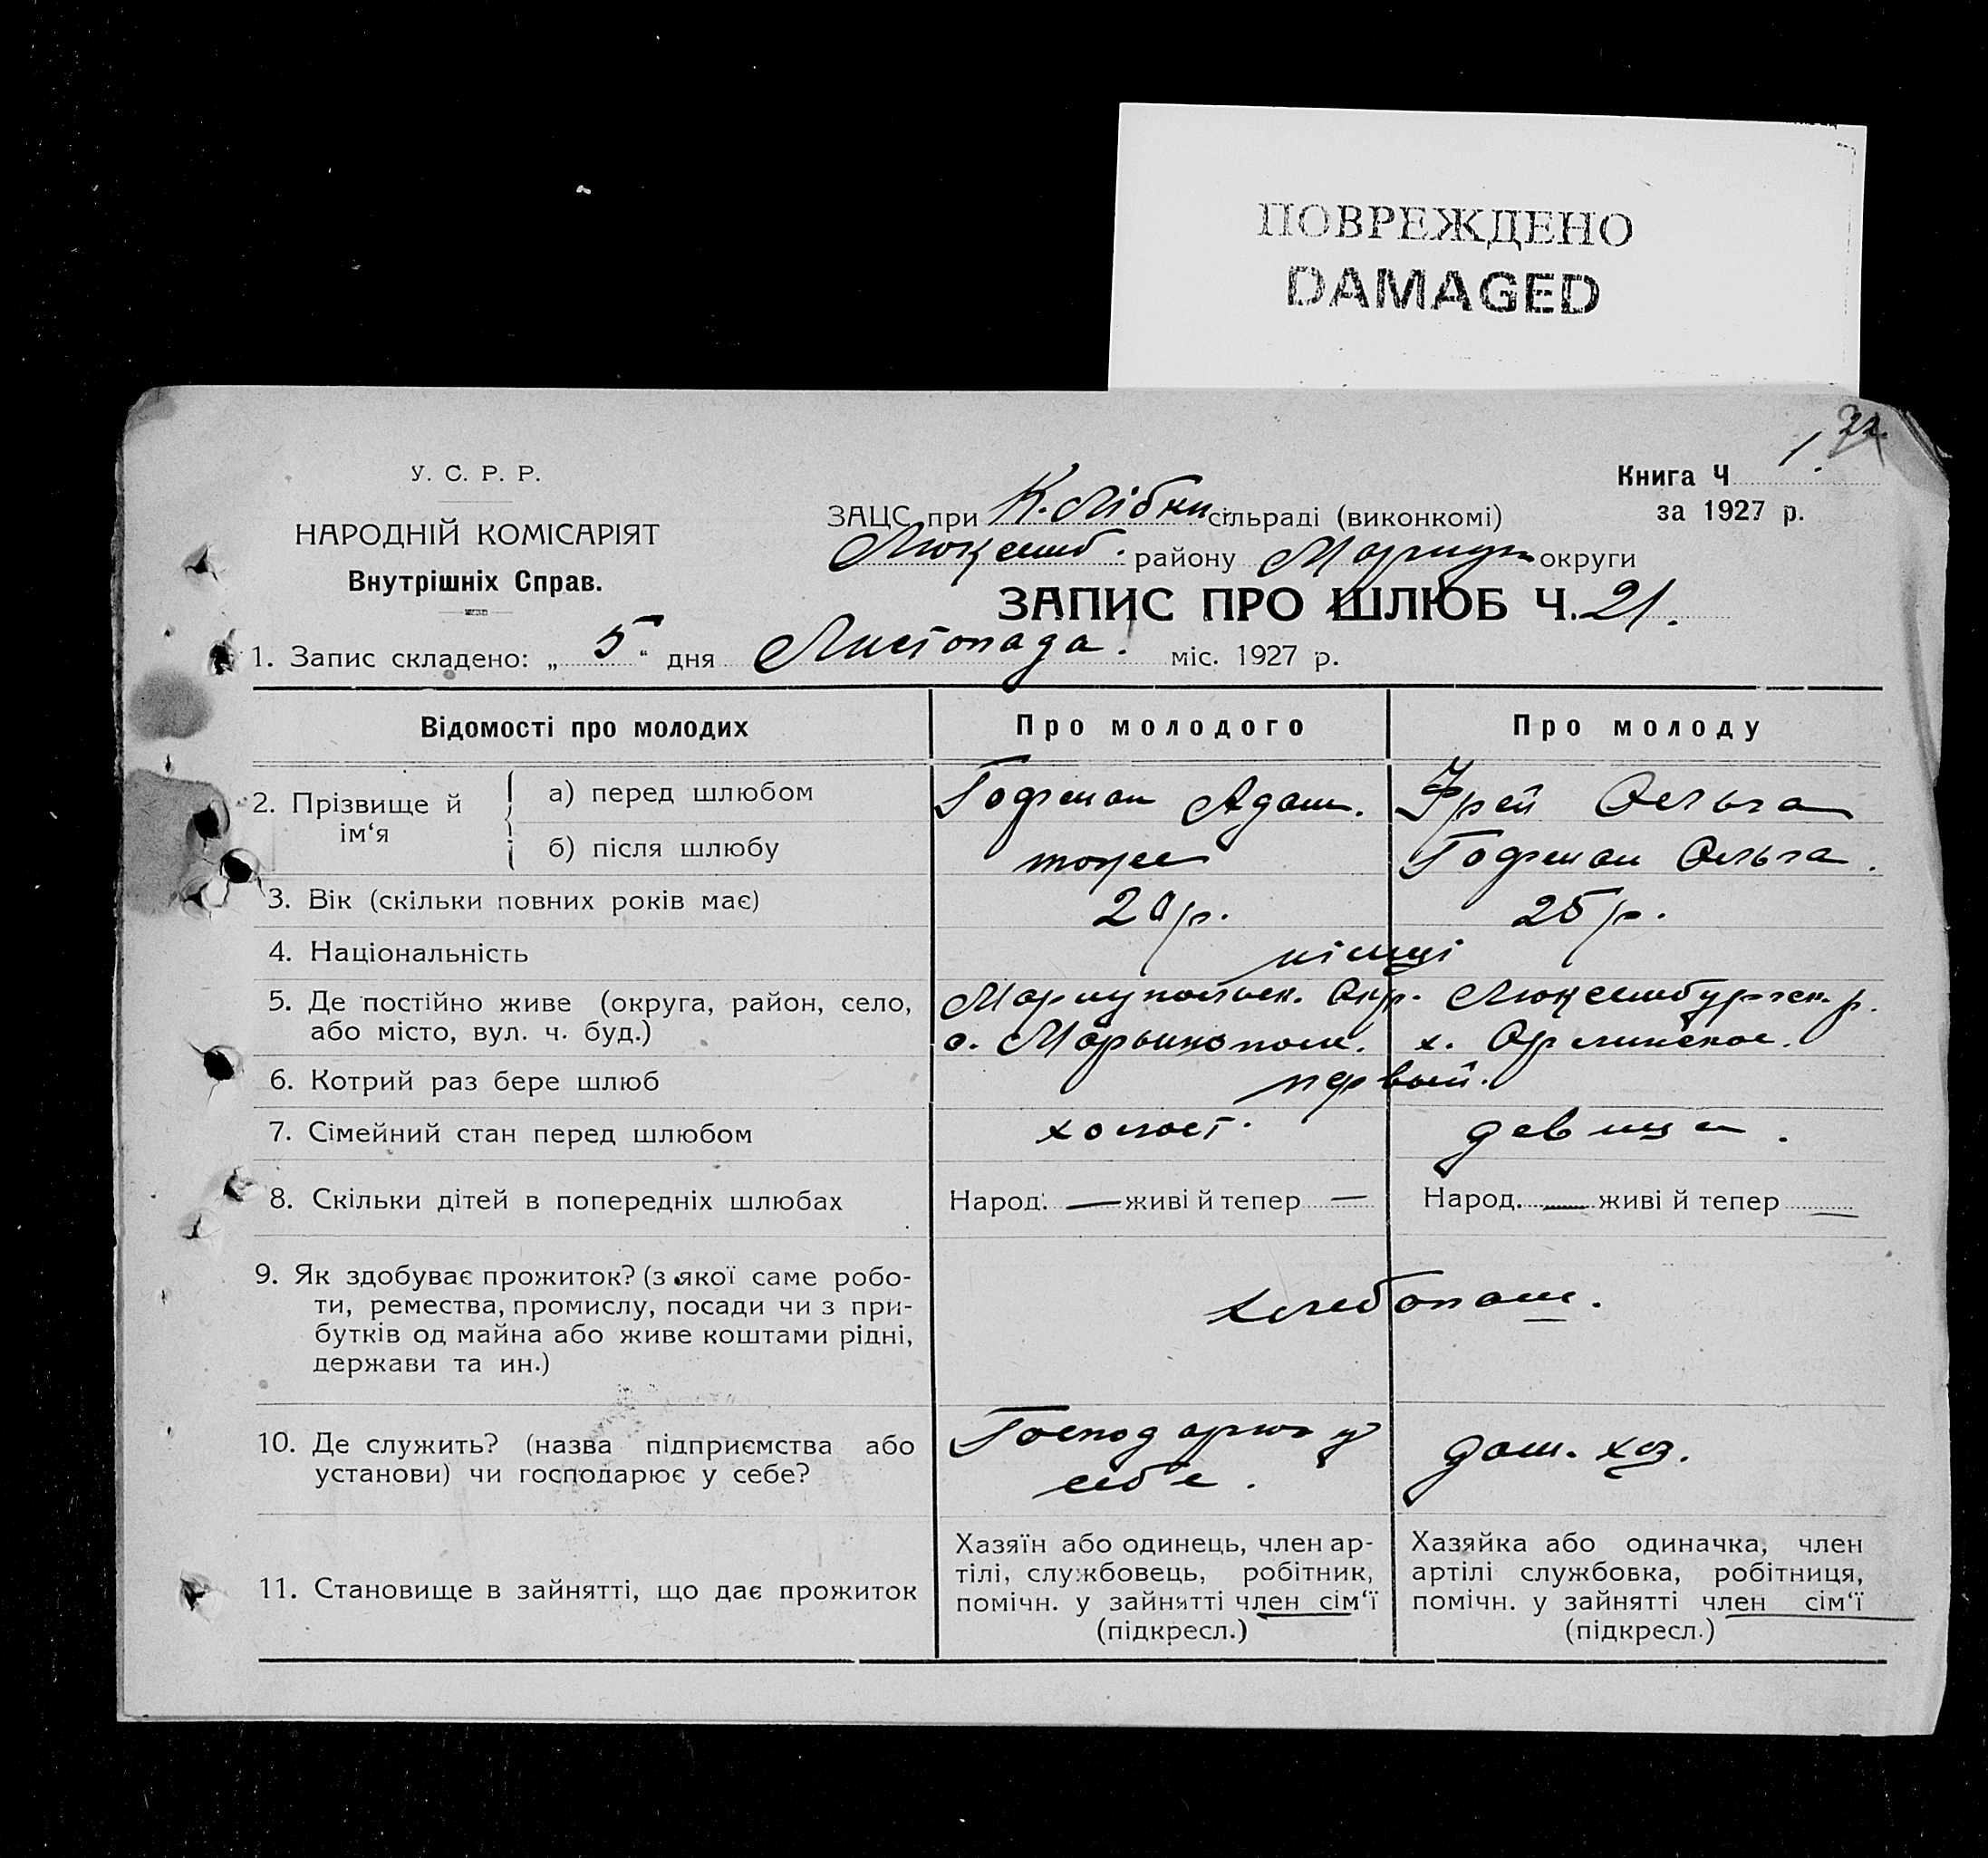 ПОВРЕЖДЕНО
DAMAGED
22.
У. С. Р. Р.
НАРОДНІЙ КОМІСАРІЯТ
Внутрішніх Справ.
Книга Ч 1.
за 1927 р.
ЗАЦС при К. Лібкн сільраді (виконкомі)
Люксемб. району Маріуп округи
ЗАПИС ПРО ШЛЮБ Ч. 21.
1. Запис складено: „ 5 “ дня Листопада. міс. 1927 р.
Відомості про молодих Про молодого Про молоду
2. Прізвище й ім‘я
а) перед шлюбом Гофман Адам. Фрей Ольга
б) після шлюбу тоже Гофман Ольга.
3. Вік (скільки повних років має) 20 р. 25 р.
4. Національність німці
5. Де постійно живе (округа, район, село, Мариупольск. Окр. Люксембургск. р.
або місто, вул. ч. буд.) х.
6. Котрий раз бере шлюб первый.
7. Сімейний стан перед шлюбом холост. девица.
8. Скільки дітей в попередніх шлюбах Народ. — живі й тепер — Народ. — живі й тепер —
9. Як здобуває прожиток? (з якої саме робо-
ти, ремества, промислу, посади чи з при-
бутків од майна або живе коштами рідні,
держави та ин.)
хлебопаш.
10. Де служить? (назва підприємства або
установи) чи господарює у себе?
Господарює у
себе.
дом. хоз.
11. Становище в зайнятті, що дає прожиток
Хазяїн або одинець, член ар-
тілі, службовець, робітник,
помічн. у зайнятті член сім‘ї
(підкресл.)
Хазяйка або одиначка, член
артілі службовка, робітниця,
помічн. у зайнятті член сім‘ї
(підкресл.)